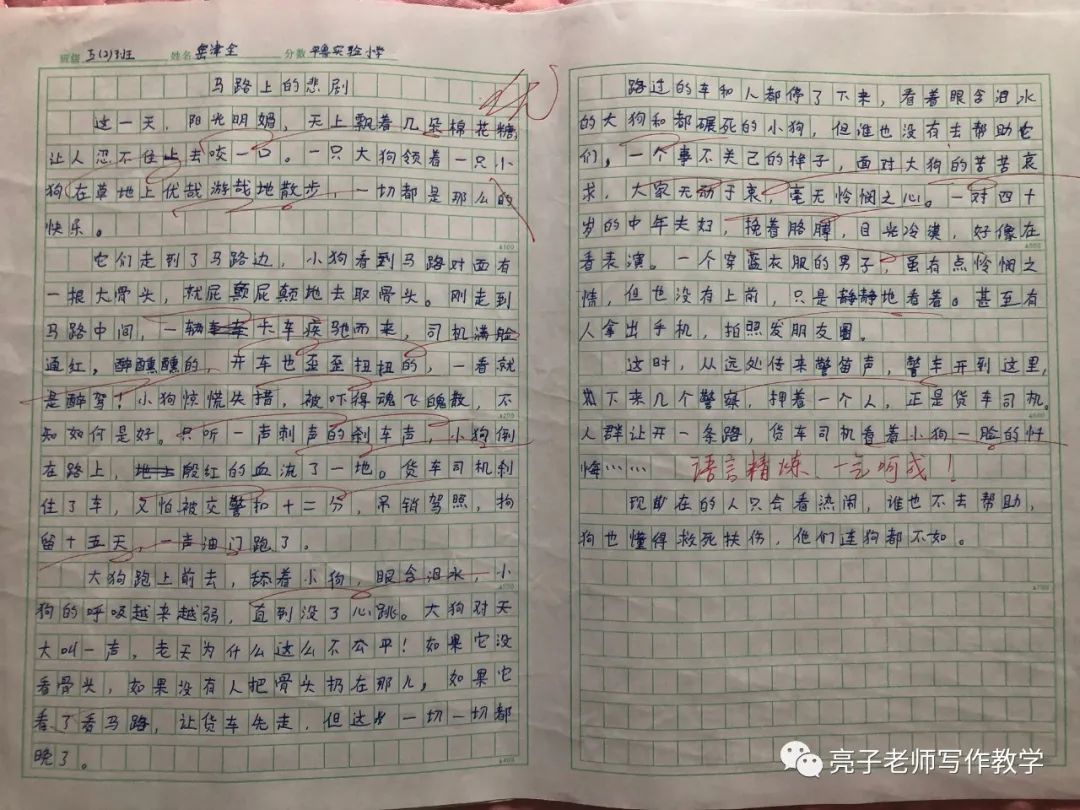 班级 五(2)班 姓名 岳津全 分数 平鲁实验小学
马路上的悲剧
这一天，阳光明媚，天上飘着几朵棉花糖，
让人忍不住上去咬一口。一只大狗领着一只小
狗在草地上优哉游哉地散步，一切都是那么的
快乐。
它们走到了马路边，小狗看到马路对面有
一根大骨头，就屁颠屁颠地去取骨头。刚走到
马路中间，一辆卡车疾驰而来，司机满脸
通红，醉醺醺的，开车也歪歪扭扭的，一看就
是醉驾！小狗惊慌失措，被吓得魂飞魄散，不
知如何是好。只听一声刺声的刹车声，小狗倒
在路上，殷红的血流了一地。货车司机刹
住了车，又怕被交警扣十二分，吊销驾照，拘
留十五天，一声油门跑了。
大狗跑上前去，舔着小狗，眼含泪水，小
狗的呼吸越来越弱，直到没了心跳。大狗对天
大叫一声，老天为什么这么不公平！如果它没
看骨头，如果没有人把骨头扔在那儿，如果它
看了看马路，让货车先走，但这一切一切都
晚了。
路过的车和人都停了下来，看着眼含泪水
的大狗和都碾死的小狗，但谁也没有去帮助它
们，一个事不关己的样子，面对大狗的苦苦哀
求，大家无动于衷，毫无怜悯之心。一对四十
岁的中年夫妇，挽着胳膊，目光冷漠，好像在
看表演。一个穿蓝衣服的男子，虽有点怜悯之
情，但也没有上前，只是静静地看着。甚至有
人拿出手机，拍照发朋友圈。
这时，从远处传来警笛声，警车开到这里，
下来几个警察，押着一个人，正是货车司机。
人群让开一条路，货车司机看着小狗一脸的忏
悔…… 语言精炼、一气呵成！
现在的人只会看热闹，谁也不去帮助，
狗也懂得救死扶伤，他们连狗都不如。
亮子老师写作教学